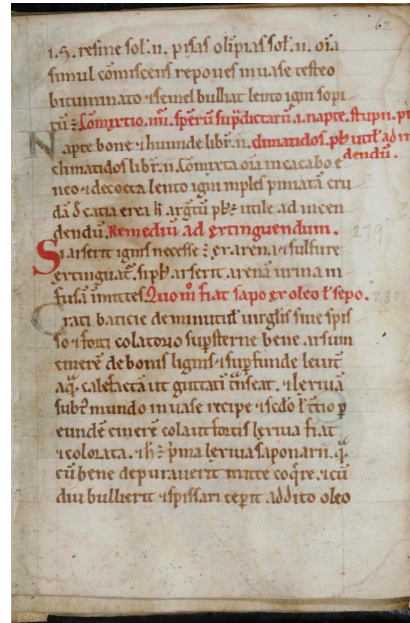 62
.i. S. resine sol. ii. pisas olīpias sol. ii. oīa
simul cōmiscens repones in uase testeo
bituminato ⁊ semel bulliat lento igni sopi
Cōmixtio. iiii. sperū sup̄dictarū .i. napte. stupii.
Napte bone ⁊ humide libr̄. ii. climatidos.
climatidos libr̄. ii. Cōmixta oīa in cacabo e
dendiū.
neo ⁊ decocta lento igni
utile ad incen
dendiū. Remediū ad extinguendum. 279
Si arserit ignis necesse ē ex arena ⁊ sulfure
extinguat᷑. si pb̄ arserit arenā urina in
fusā īmittes Quo m̊ fiat sapo ex oleo ł sepo. 280
Crati baticie de minutis uirgis siue spis
so ⁊ forti colatorio sup̄sterne bene arsum
cinerē de bonis lignis ⁊ sup̄funde leuit̄
aq̄. calefactā ut guttatī t̄nseat. ⁊ lexiuā
subt᷑ mundo in uase recipe ⁊ scd̄o ł t̄cio p̄
eundē cinerē cola ut fortis lexiua fiat
⁊ colorata. ⁊ h̄ ē p̄ma lexiua saponarii. q̄
cū bene depurauerit mitte coq̄re. ⁊ cū
diu bullierit ⁊ spissari cep̄it. addito oleo